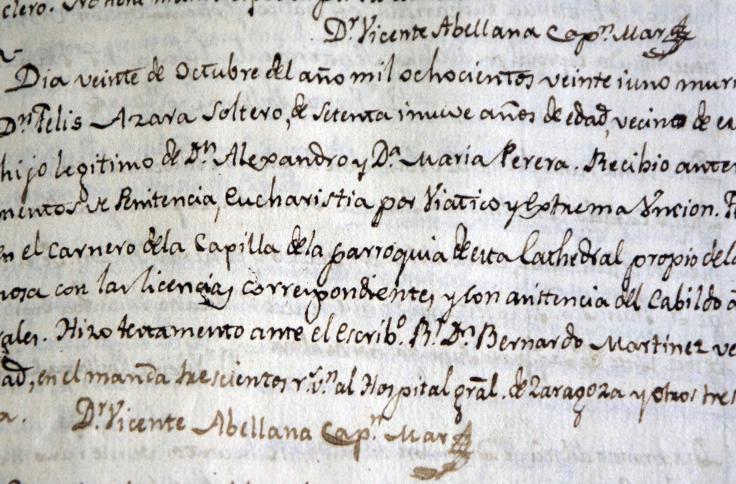 clero.
Dr. Vicente Abellana Capn. Mar
Dia veinte de Octubre del año mil ochocientos veinte iuno muri
Dn. Felis Azara Soltero, de setenta inueve años de edad, vecino de e
hijo legitimo de Dn. Alexandro y Da. Maria Perera. Recibio ante
mentos de Penitencia, Eucharistia por Viatico y Extrema Uncion.
en el carnero dela Capilla dela parroquia de esta Cathedral propio de
nosa con las licencias correspondientes y con asistencia del Cabildo
rales. Hizo testamento ante el Escribo. Rl. Dn. Bernardo Martinez ve
dad, en el manda trescientos rs. vn. al Hospital gral. de Zaragoza y otros tres
a. Dr. Vicente Abellana Capn. Mar